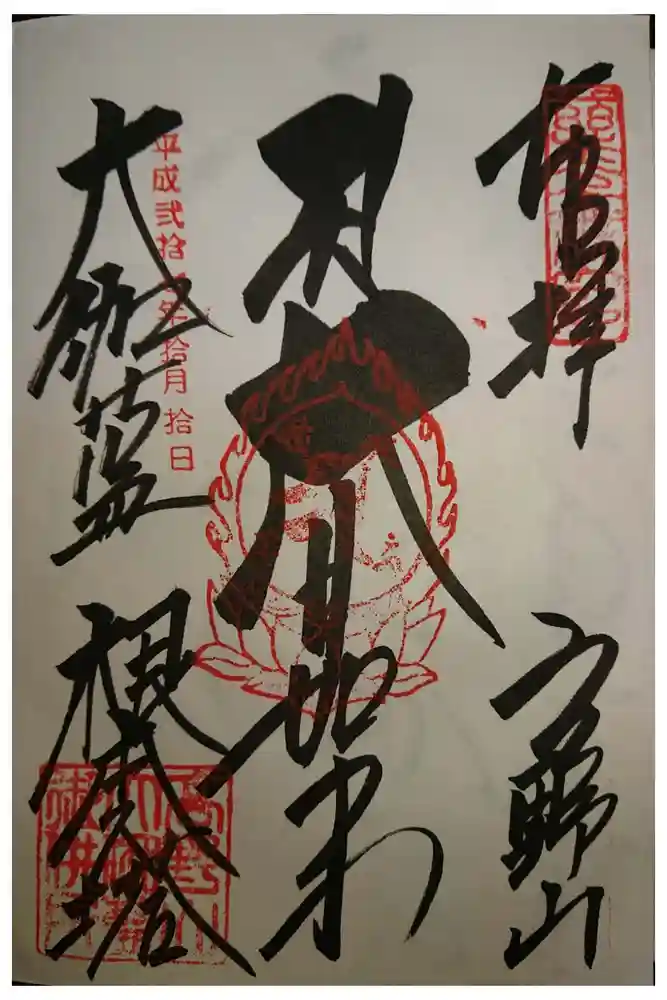 奉拝
高野山
大日如来
大伽藍
根本大塔
平成弐拾
年拾月拾日